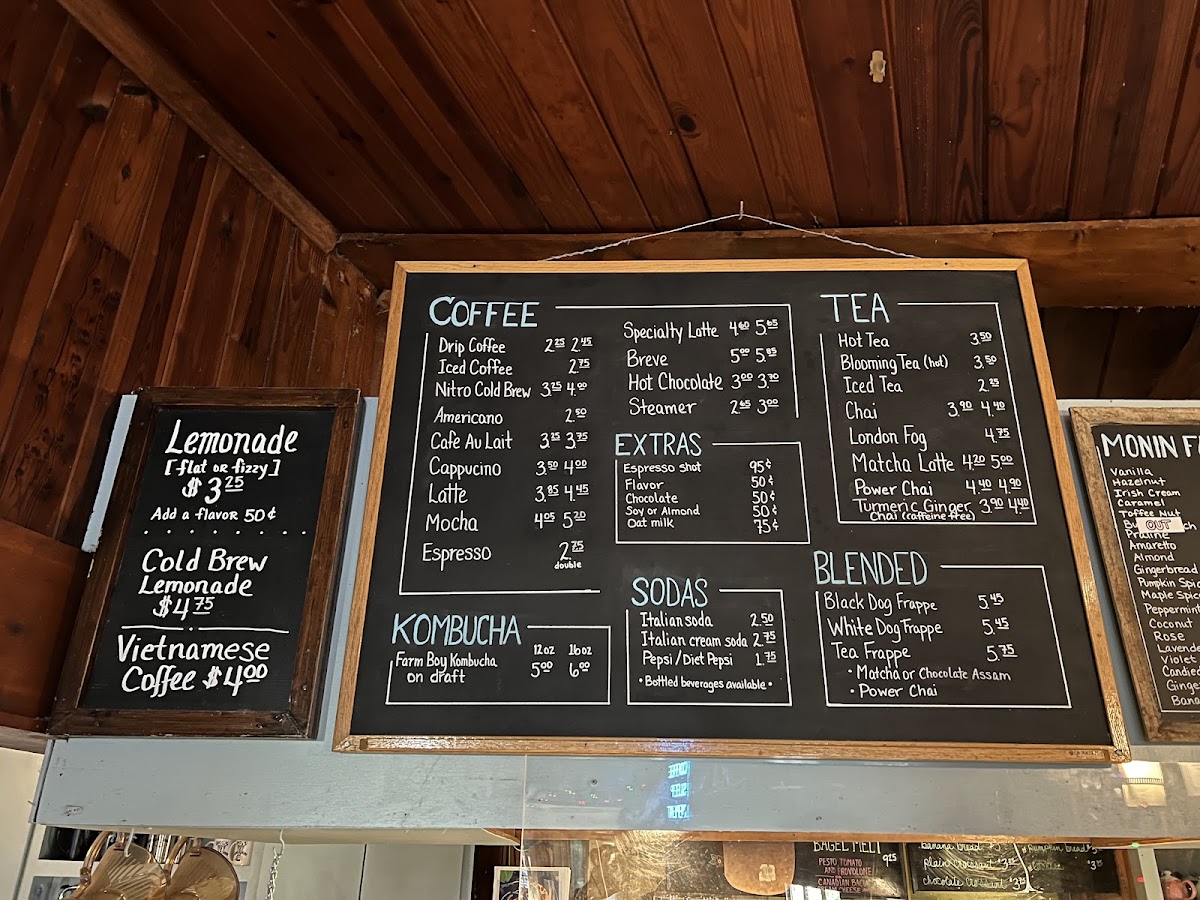 Lemonade
[flat or fizzy]
$3 25
Add a flavor 50¢
Cold Brew
Lemonade
$4 75
Vietnamese
Coffee $4 00
COFFEE
Drip Coffee 2 25 2 45
Iced Coffee 2 75
Nitro Cold Brew 3 25 4 00
Americano 2 50
Cafe Au Lait 3 25 3 75
Cappucino 3 50 4 00
Latte 3 85 4 45
Mocha 4 05 5 20
Espresso 2 75
double
Specialty Latte 4 60 5 65
Breve 5 00 5 85
Hot Chocolate 3 00 3 70
Steamer 2 65 3 00
EXTRAS
Espresso shot 95¢
Flavor 50¢
Chocolate 50¢
Soy or Almond 50¢
Oat milk 75¢
KOMBUCHA
12oz 16oz
Farm Boy Kombucha 5 00 6 00
on draft
SODAS
Italian soda 2.50
Italian cream soda 2 75
Pepsi/Diet Pepsi 1 75
• Bottled beverages available •
TEA
Hot Tea 3 50
Blooming Tea (hot) 3 50
Iced Tea 2 25
Chai 3 90 4 40
London Fog 4 75
Matcha Latte 4 20 5 00
Power Chai 4 40 4 90
Turmeric Ginger 3 90 4 40
Chai (caffeine free)
BLENDED
Black Dog Frappe 5 45
White Dog Frappe 5 45
Tea Frappe 5 75
• Matcha or Chocolate Assam
• Power Chai
MONIN
Vanilla
Hazelnut
Irish Cream
Caramel
Toffee Nut
OUT
Praline
Amaretto
Almond
Gingerbread
Pumpkin Spic
Maple Spic
Peppermint
Coconut
Rose
Lavende
Violet
Candied
Ginge
Bana
BAGEL MELT
9 25
PESTO TOMATO
AND PROVOLONE
CANADIAN BACO
banana bread
Pumpkin bread
Plain Croissant
chocolate Croissant